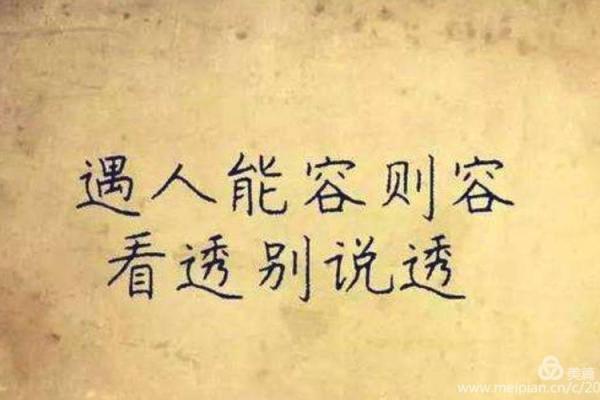 遇人能容则容
看透别说透
美篇
www.meipian.cn/c/20